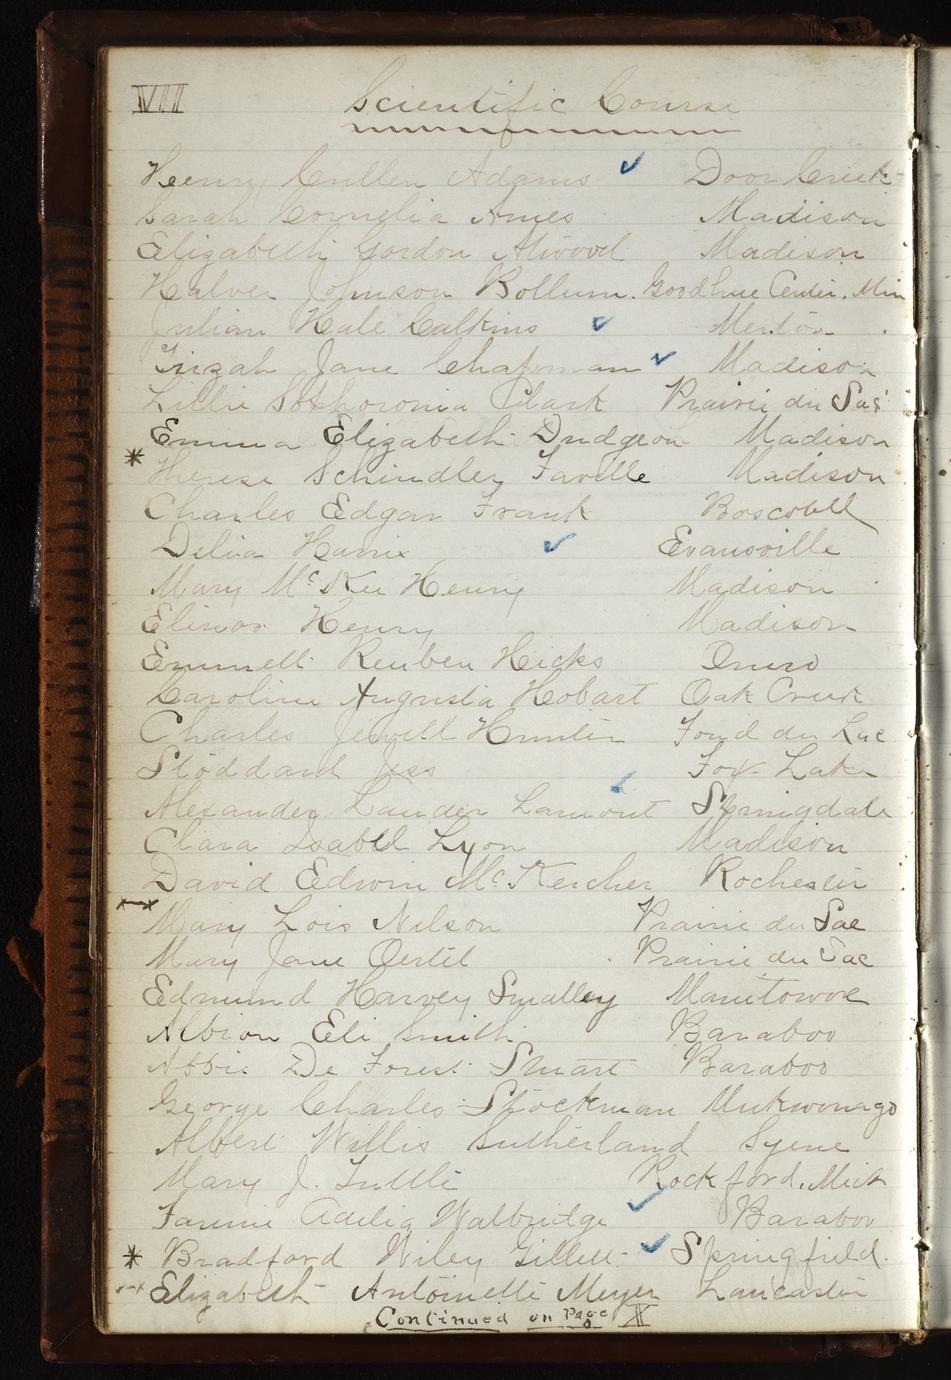 VII Scientific Course
Henry Cullen Adams ✓ Door Creek
Sarah Cornelia Ames Madison
Elizabeth Gordon Atwood Madison
Halver Johnson Bollum. Goodhue Center. Min
Julian Hale Calkins ✓ Menton
Tirzah Jane Chapman ✓ Madison
Lillie Sophoronia Clark Prairie du Sac
Emma Elizabeth Dudgeon Madison
* Therese Schindler Faville Madison
Charles Edgar Frank Boscobell
Delia Harris ✓ Evansville
Mary McKee Henry Madison
Elinor Henry Madison
Emmett Reuben Hicks Omro
Caroline Augusta Hobart Oak Creek
Charles Jewell Hunter Fond du Lac
Stoddard Jess Fox Lake
Alexander Lauder Lamont ✓ Springdale
Clara Isabell Lyon Madison
David Edwin McKercher Rochester
Mary Lois Nelson Prairie du Sac
Mary Jane Oertel Prairie du Sac
Edmund Harvey Smalley Manitowoc
Albion Eli Smith Baraboo
Abbie De Forest Stuart Baraboo
George Charles Stockman Mukwonago
Albert Willis Sutherland Syene
Mary J. Tuttle Rockford. Mich
Fannie Adelia Walbridge ✓ Baraboo
* Bradford Wiley Gillett ✓ Springfield.
Elizabeth Antoinette Meyer Lancaster
Continued on Page X